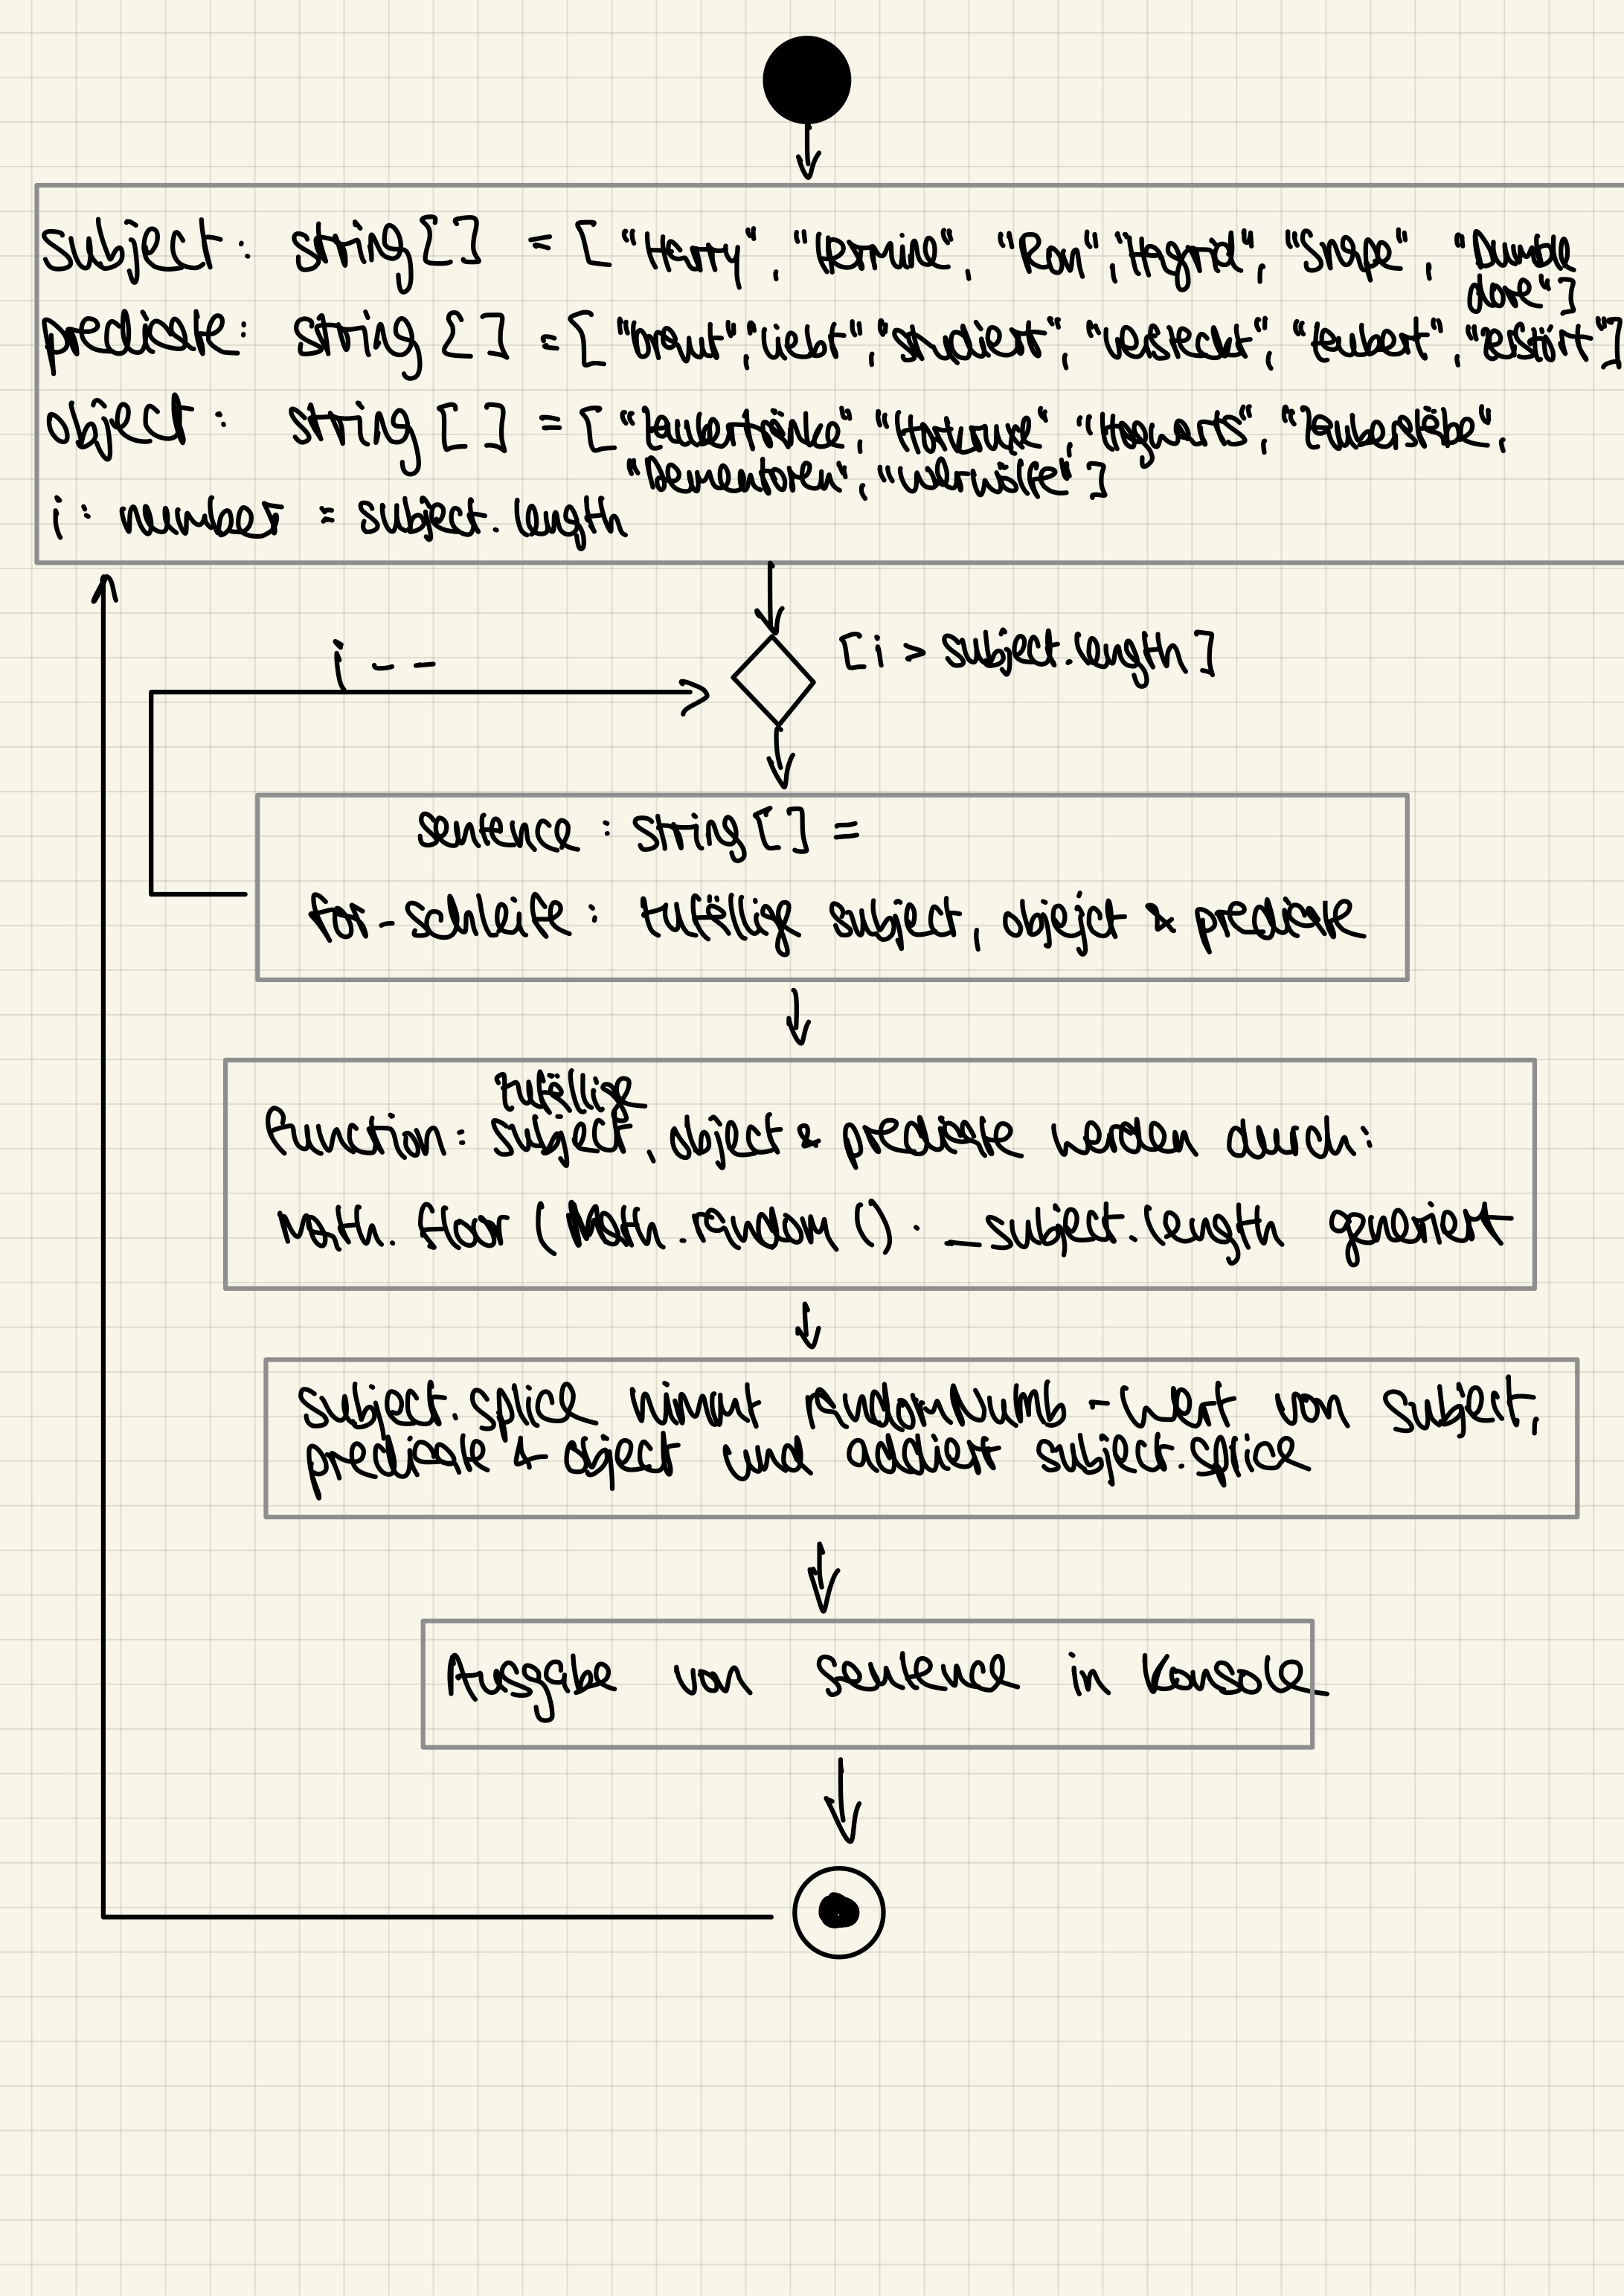 subject: string[] = ["Harry", "Hermine", "Ron", "Hagrid", "Snape", "Dumble
dore"]
predicate: string[] = ["braut", "liebt", "studiert", "versteckt", "zaubert", "zerstört"]
object: string[] = ["Zaubertränke", "Horkruxe", "Hogwarts", "Zauberstäbe",
"Dementoren", "Werwölfe"]
i: number = subject.length
i --
[i > subject.length]
sentence : string[] =
for-schleife: zufällige subject, objejct & predicate
zufällige
function: subject, object & predicate werden durch:
Math.floor (Math.random () · _subject.length generiert
subject.splice nimmt randomNumb-Wert von subject,
predicate & object und addiert subject.splice
Ausgabe von sentence in Konsole